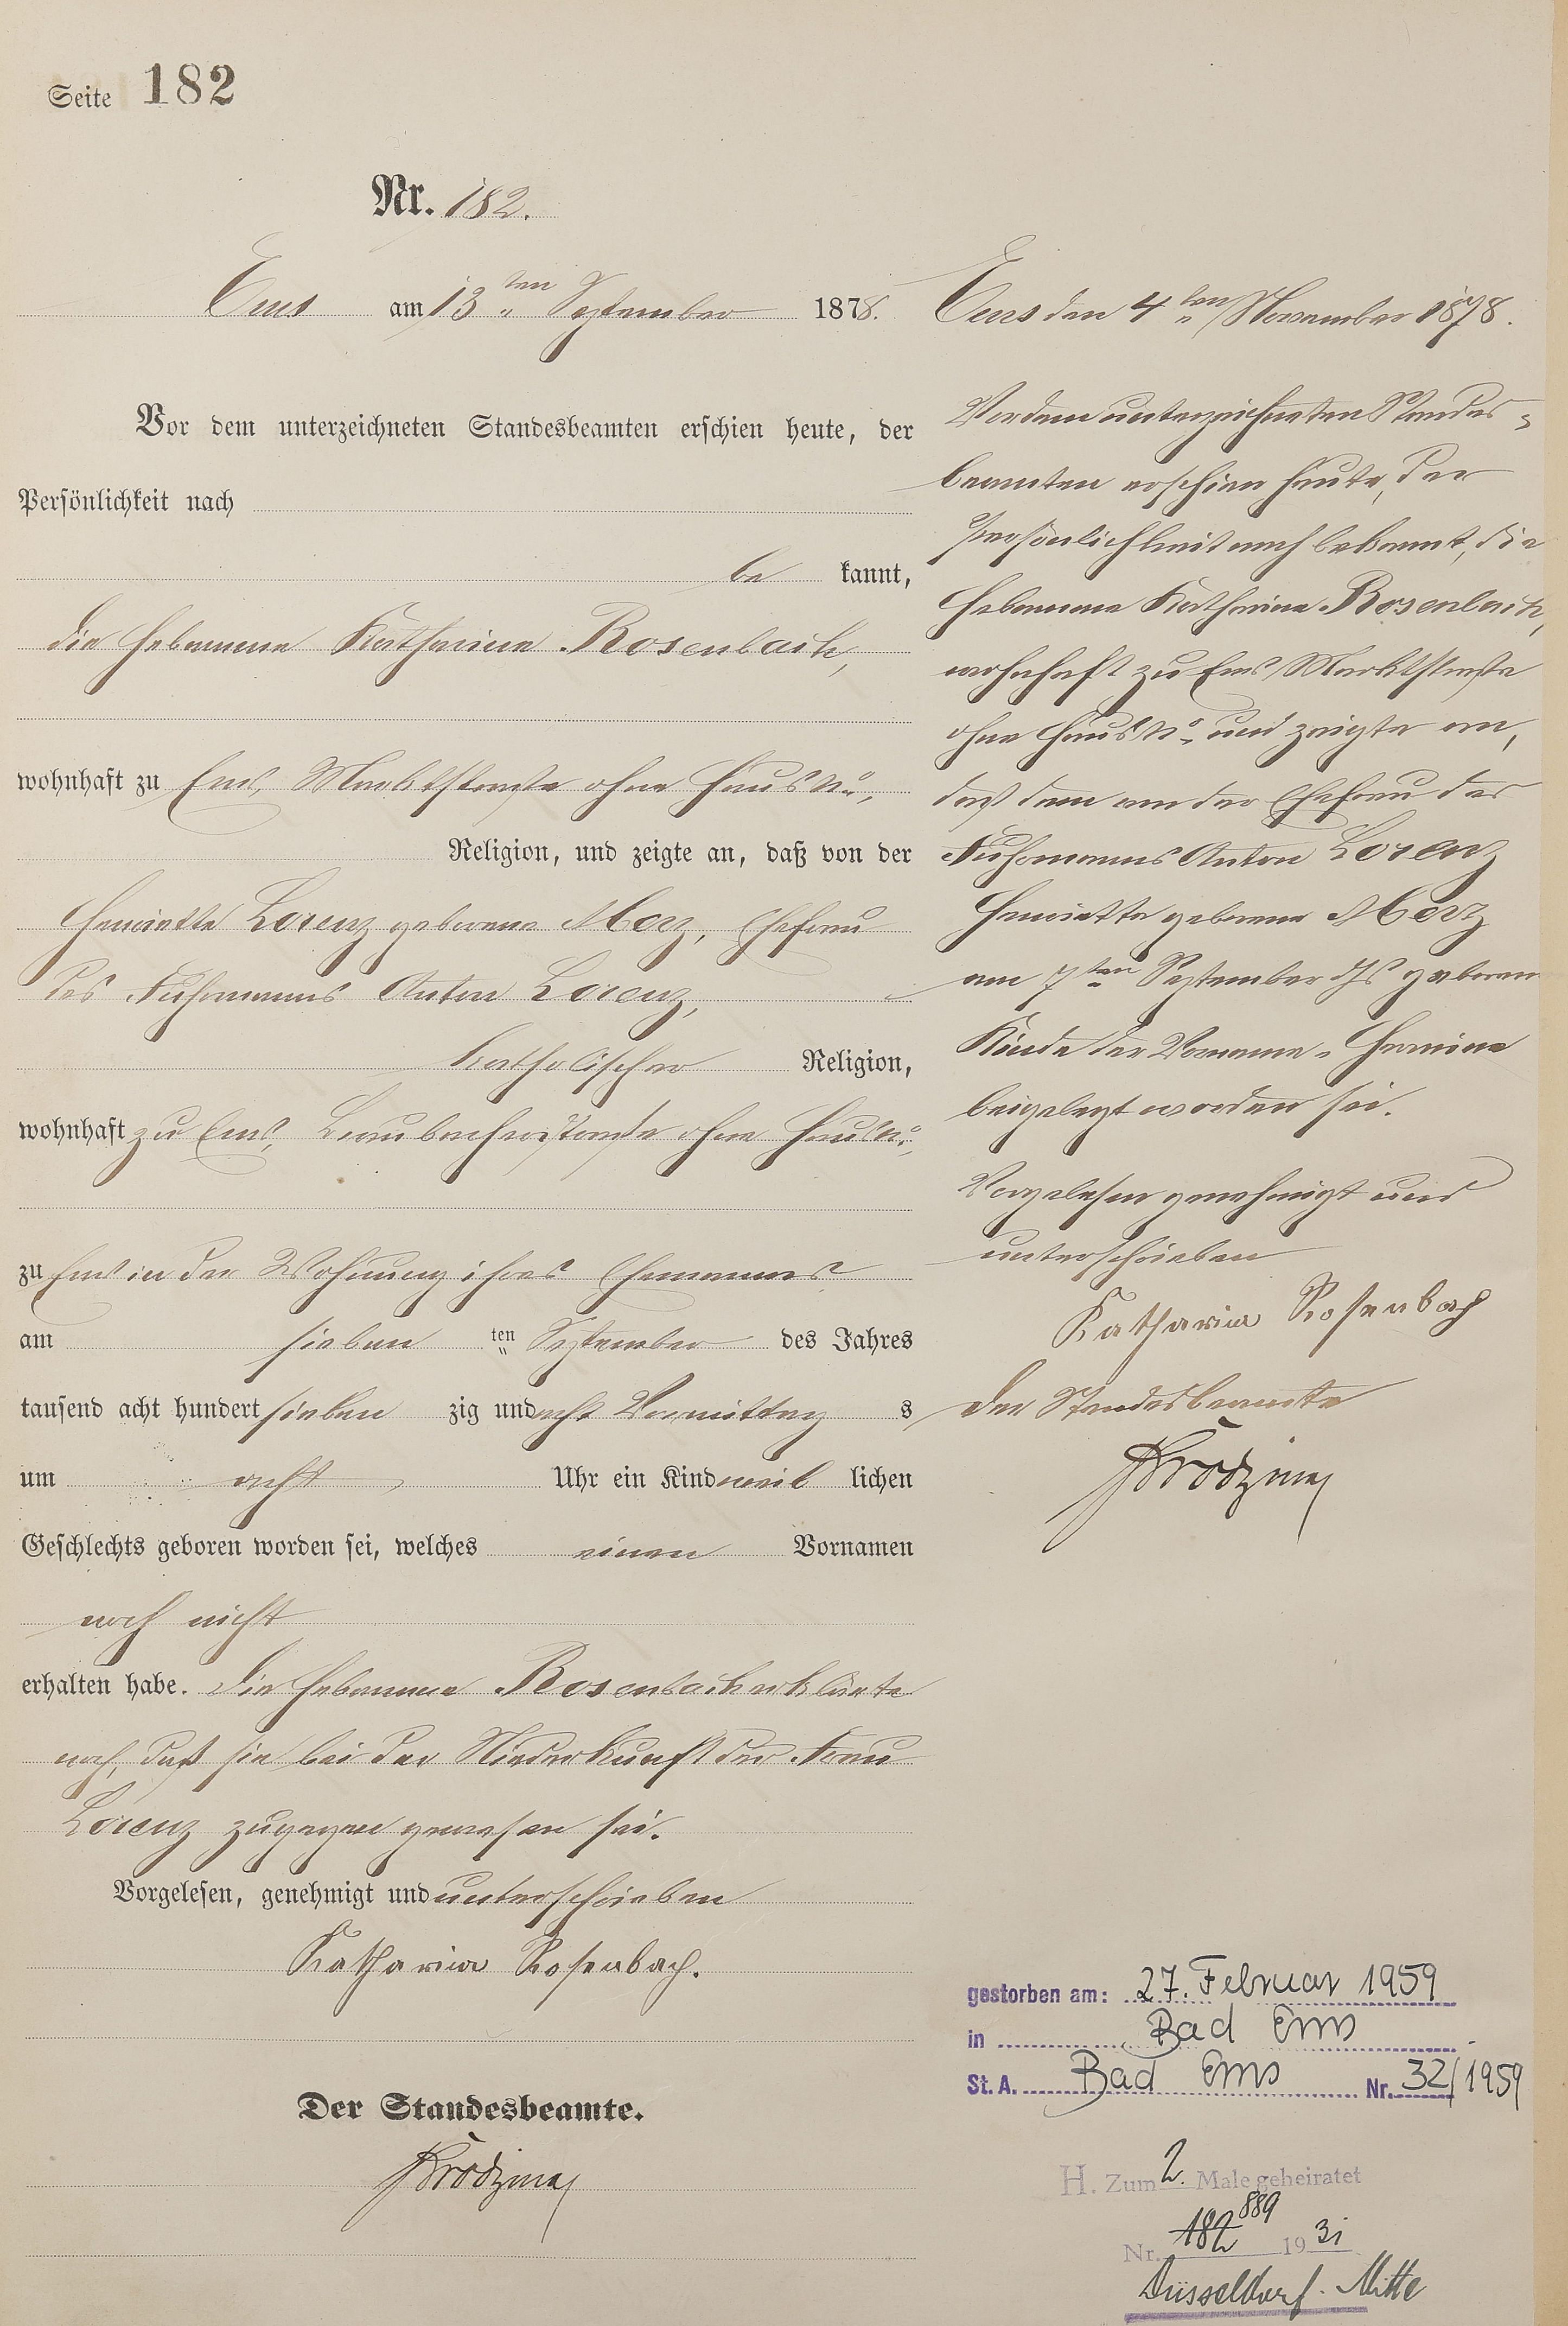 Seite 182
Nr. 182.
Ems am 13ten September 1878.
Vor dem unterzeichneten Standesbeamten erschien heute, der
Persönlichkeit nach
be kannt,
die Hebamme Katharina Rosenbach,
wohnhaft zu Ems, Marktstraße ohne Haus No,
Religion, und zeigte an, daß von der
Henriette Lorenz geborene Merz, Ehefrau
des Fuhrmanns Anton Lorenz,
katholischer Religion,
wohnhaft zu Ems, Braubacherstraße ohne Haus No,
zu Ems in der Wohnung ihres Ehemannes
am sieben ten September des Jahres
tausend acht hundert sieben zig und acht Vormittag s
um acht Uhr ein Kind weib lichen
Geschlechts geboren worden sei, welches einen Vornamen
noch nicht
erhalten habe. Die Hebamme Rosenbach erklärte
noch, daß sie bei der Niederkunft der Frau
Lorenz zugegen gewesen sei.
Vorgelesen, genehmigt und unterschrieben
Katharina Rosenbach.
Der Standesbeamte.
Ems den 4ten November 1878.
Vor dem unterzeichneten Standes-
beamten erschien heute, der
Persönlichkeit nach bekannt, die
Hebamme Katharina Rosenbach,
wohnhaft zu Ems Marktstraße
ohne Haus No und zeigte an,
daß dem von der Ehefrau des
Fuhrmanns Anton Lorenz
Henriette geborene Merz
am 7ten September d Js geborenen
Kinde der Vorname "Hermine
beigelegt worden sei.
Vorgelesen genehmigt und
unterschrieben
Katharina Rosenbach
Der Standesbeamte
gestorben am: 27. Februar 1959
in Bad Ems
St. A. Bad Ems Nr. 32/1959
H. Zum 2. Male geheiratet
Nr. 182 889 1931
Düsseldorf-Mitte